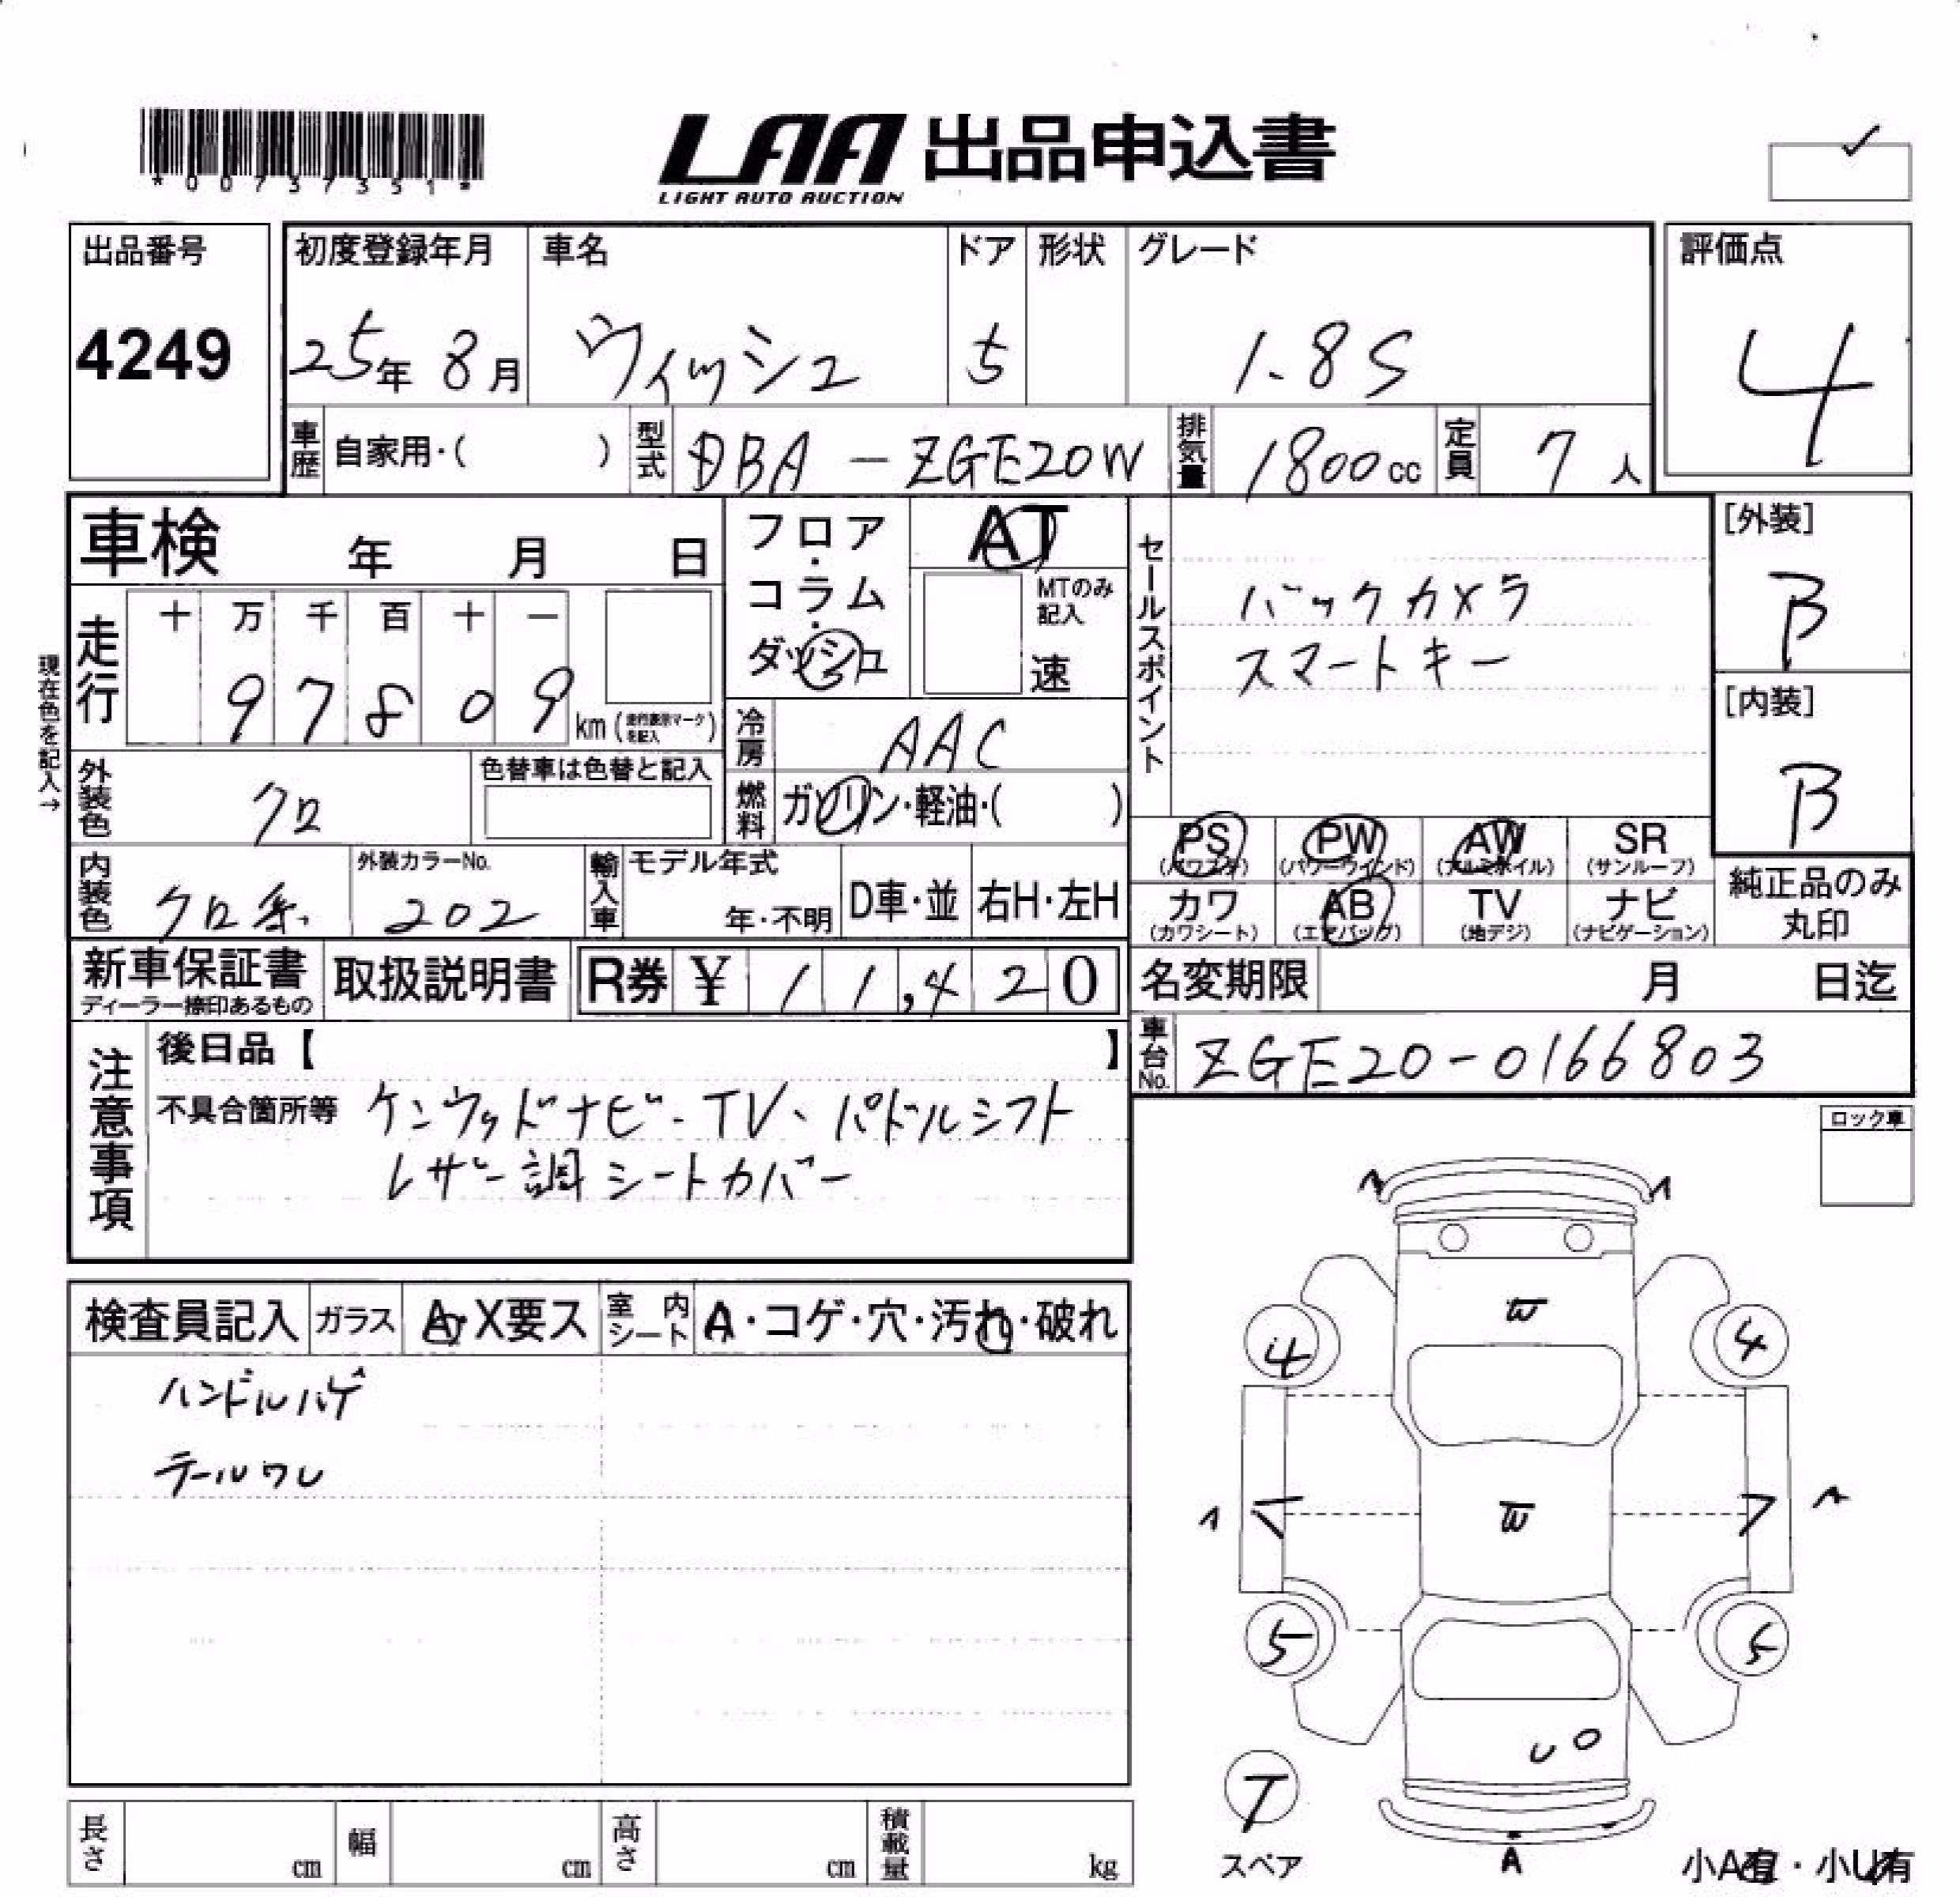 *00737351*
LAA 出品申込書
LIGHT AUTO AUCTION
出品番号
4249
初度登録年月
25年 8月
車名
ヴィッシュ
ドア
5
形状
グレード
1.8S
評価点
4
車歴 自家用・( )
型式 DBA-ZGE20W
排気量 1800cc
定員 7人
車検 年 月 日
フロア・コラム・ダッシュ
AT
MTのみ記入
速
セールスポイント
バックカメラ
スマートキー
[外装]
B
[内装]
B
現在色を記入→
走行
十 万 千 百 十 一
9 7 8 0 9
km (走行表示マークを記入)
冷房 AAC
外装色 クロ
色替車は色替と記入
燃料 ガソリン・軽油・( )
PS (パワステ)
PW (パワーウインド)
AW (アルミホイル)
SR (サンルーフ)
カワ (カワシート)
AB (エアバッグ)
TV (地デジ)
ナビ (ナビゲーション)
純正品のみ丸印
内装色 クロ系
外装カラーNo. 202
輸入車
モデル年式
年・不明
D車・並
右H・左H
新車保証書
ディーラー捺印あるもの
取扱説明書
R券 ¥ 11,420
名変期限 月 日迄
車台No. ZGE20-0166803
注意事項
後日品【 】
不具合箇所等 ケンウッドナビ・TV、パドルシフト
レザー調シートカバー
ロック車
検査員記入
ガラス A・X要ス
室内シート A・コゲ・穴・汚れ・破れ
ハンドルハゲ
テールワレ
4
4
5
5
T
スペア
A
小A有・小U有
長さ cm
幅 cm
高さ cm
積載量 kg